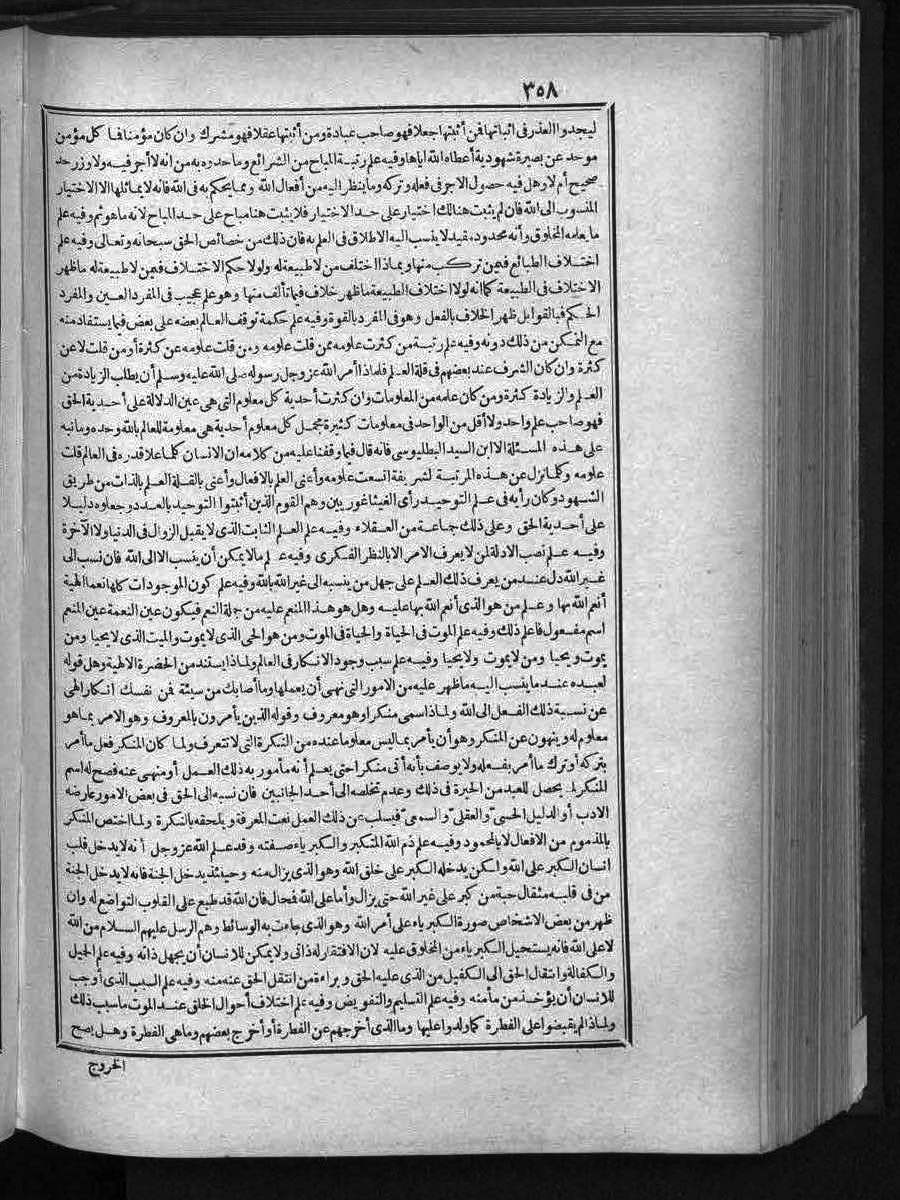 ٣٥٨
ليجدوا العذر فى اثباتها فمن أثبتها جعلا فهو صاحب عبادة ومن أثبتها عقلا فهو مشرك وان كان مؤمنا فما كل مؤمن
موحد عن بصيرة شهودية أعطاه الله اياها وفيه علم رتبة المباح من الشرائع وما حدوده به من انه لا أجر فيه ولا وزر حد
صحيح أم لا وهل فيه حصول الاجر فى فعله وتركه وما ينظر اليه من أفعال الله ومما يحكم به فى الله فانه لا يماثلها الا الاختيار
المنسوب الى الله فان لم يثبت هنالك اختيار على حد الاختيار فلا يثبت هنا مباح على حد المباح لانه ما هو ثم وفيه علم
ما يعلمه المخلوق وأنه محدود مقيد لا ينسب اليه الاطلاق فى العلم به فان ذلك من خصائص الحق سبحانه وتعالى وفيه علم
اختلاف الطبائع فيمن تركب منها وبماذا اختلف من لا طبيعة له ولولا حكم الاختلاف فيمن لا طبيعة له ما ظهر
الاختلاف فى الطبيعة كما انه لولا اختلاف الطبيعة ما ظهر خلاف فيما تألف منها وهو علم عجيب فى المفرد العين والمفرد
الحكم فبالقوابل ظهر الخلاف بالفعل وهو فى المفرد بالقوة وفيه علم حكمة توقف العالم بعضه على بعض فيما يستفاد منه
مع التمكن من ذلك دونه وفيه علم رتبة من كثرت علومه ممن قلت علومه ومن قلت علومه عن كثرة أو من قلت لا عن
كثرة وان كان الشرف عند بعضهم فى قلة العلم فلماذا أمر الله عز وجل رسوله صلى الله عليه وسلم أن يطلب الزيادة من
العلم والزيادة كثرة ومن كان علمه من المعلومات وان كثرت أحدية كل معلوم التى هى عين الدلالة على أحدية الحق
فهو صاحب علم واحد ولا أقل من الواحد فى معلومات كثيرة مجمل كل معلوم أحدية هى معلومة للعالم بالله وحده وما نبه
على هذه المسئلة الا ابن السيد البطليوسى فانه قال فيما وقفنا عليه من كلامه ان الانسان كلما علا قدره فى العالم قلت
علومه وكلما نزل عن هذه المرتبة الشريفة اتسعت علومه وأعنى العلم بالافعال وأعنى بالقلة العلم بالذات من طريق
الشهود وكان رأيه فى علم التوحيد رأى الفيثاغوريين وهم القوم الذين أثبتوا التوحيد بالعدد وجعلوه دليلا
على أحدية الحق وعلى ذلك جماعة من العقلاء وفيه علم العلم الثابت الذى لا يقبل الزوال فى الدنيا ولا الآخرة
وفيه علم نصب الادلة لمن لا يعرف الامر الا بالنظر الفكرى وفيه علم ما لا يمكن أن ينسب الا الى الله فان نسب الى
غير الله دل عند من يعرف ذلك العلم على جهل من ينسبه الى غير الله بالله وفيه علم كون الموجودات كلها نعما الهية
أنعم الله بها وعلم من هو الذى أنعم الله بها عليه وهل هو هذا المنعم عليه من جملة النعم فيكون عين النعمة عين المنعم
اسم مفعول فاعلم ذلك وفيه علم الموت فى الحياة والحياة فى الموت ومن هو الحى الذى لا يموت والميت الذى لا يحيا ومن
يموت ويحيا ومن لا يموت ولا يحيا وفيه علم سبب وجود الانكار فى العالم ولماذا يستند من الحضرة الالهية وهل قوله
لعبده عند ما ينسب اليه ما ظهر عليه من الامور التى نهى أن يعملها وما أصابك من سيئة فمن نفسك انكار الهى
عن نسبة ذلك الفعل الى الله ولماذا سمى منكرا وهو معروف وقوله الذين يأمرون بالمعروف وهو الامر بما هو
معلوم له وينهون عن المنكر وهو أن يأمر بما ليس معلوما عنده من النكرة التى لا تتعرف ولما كان المنكر فعل ما أمر
بتركه أو ترك ما أمر بفعله ولا يوصف بأنه أتى منكرا حتى يعلم أنه مأمور به ذلك العمل أو منهى عنه فصح له اسم
المنكر لما يحصل للعبد من الحيرة فى ذلك وعدم تخلصه الى أحد الجانبين فان نسبه الى الحق فى بعض الامور عارضه
الادب أو الدليل الحسى والعقلى والسمعى فيسلب عن ذلك العمل نعت المعرفة ويلحقه بالنكرة ولما اختص المنكر
بالمذموم من الافعال لا بالمحمود وفيه علم ذم الله المتكبر والكبرياء صفته وقد علم الله عز وجل أنه لا يدخل قلب
انسان الكبر على الله ولكن يدخله الكبر على خلق الله وهو الذى يزال منه وحينئذ يدخل الجنة فانه لا يدخل الجنة
من فى قلبه مثقال حبة من كبر على غير الله حتى يزال وأما على الله فمحال فان الله قد طبع على القلوب التواضع له وان
ظهر من بعض الاشخاص صورة الكبرياء على أمر الله وهو الذى جاءت به الوسائط وهم الرسل عليهم السلام من الله
لا على الله فانه يستحيل الكبرياء من المخلوق عليه لان الافتقار له ذاتى ولا يمكن للانسان أن يجهل ذاته وفيه علم الحيل
والكفالة وانتقال الحق الى الكفيل من الذى عليه الحق وبراءة من انتقل الحق عنه منه وفيه علم السبب الذى أوجب
للانسان أن يؤخذ من مأمنه وفيه علم التسليم والتفويض وفيه علم اختلاف أحوال الخلق عند الموت ما سبب ذلك
ولماذا لم يقبضوا على الفطرة كما ولدوا عليها وما الذى أخرجهم عن الفطرة أو أخرج بعضهم وما هى الفطرة وهل يصح
الخروج